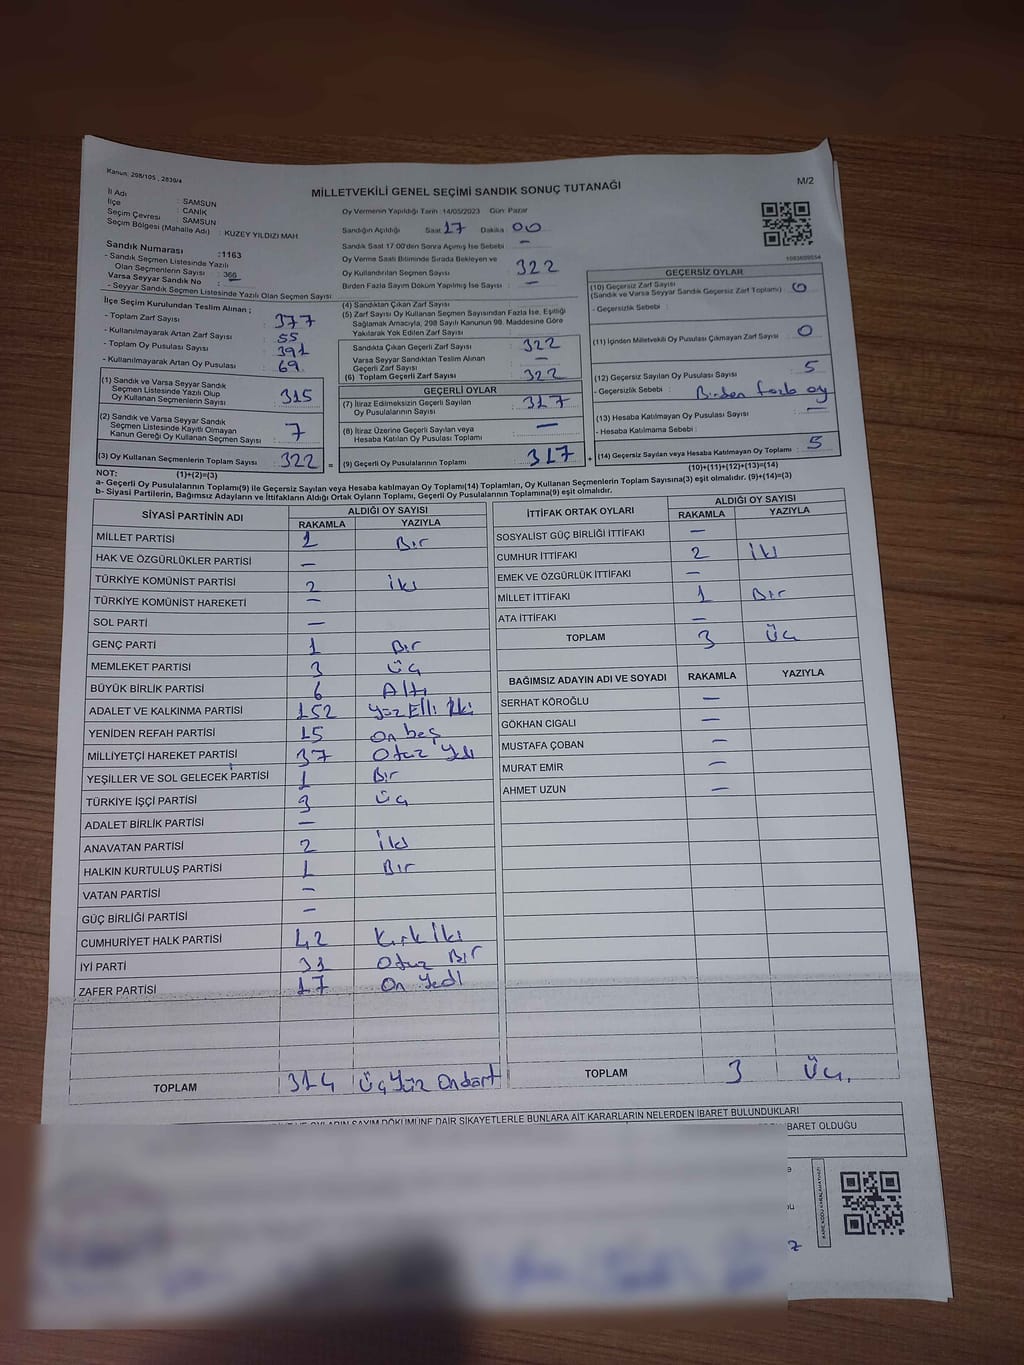 Kanun: 298/105 , 2839/4
MİLLETVEKİLİ GENEL SEÇİMİ SANDIK SONUÇ TUTANAĞI
M/2
İl Adı : SAMSUN
İlçe : CANİK
Seçim Çevresi : SAMSUN
Seçim Bölgesi (Mahalle Adı) : KUZEY YILDIZI MAH
Sandık Numarası :1163
- Sandık Seçmen Listesinde Yazılı
Olan Seçmenlerin Sayısı : 366
Varsa Seyyar Sandık No : –
- Seyyar Sandık Seçmen Listesinde Yazılı Olan Seçmen Sayısı
Oy Vermenin Yapıldığı Tarih : 14/05/2023 Gün: Pazar
Sandığın Açıldığı Saat 17 Dakika 00
Sandık Saat 17:00'den Sonra Açımış İse Sebebi : –
Oy Verme Saati Bitiminde Sırada Bekleyen ve
Oy Kullandırılan Seçmen Sayısı : 322
Birden Fazla Sayım Döküm Yapılmış İse Sayısı : –
İlçe Seçim Kurulundan Teslim Alınan ;
- Toplam Zarf Sayısı : 377
- Kullanılmayarak Artan Zarf Sayısı : 55
- Toplam Oy Pusulası Sayısı : 391
- Kullanılmayarak Artan Oy Pusulası : 69
(1) Sandık ve Varsa Seyyar Sandık
Seçmen Listesinde Yazılı Olup
Oy Kullanan Seçmenlerin Sayısı : 315
(2) Sandık ve Varsa Seyyar Sandık
Seçmen Listesinde Kayıtlı Olmayan
Kanun Gereği Oy Kullanan Seçmen Sayısı : 7
(3) Oy Kullanan Seçmenlerin Toplam Sayısı : 322 =
(4) Sandıktan Çıkan Zarf Sayısı
(5) Zarf Sayısı Oy Kullanan Seçmen Sayısından Fazla İse, Eşitliği
Sağlamak Amacıyla, 298 Sayılı Kanunun 98. Maddesine Göre
Yakılarak Yok Edilen Zarf Sayısı :
Sandıkta Çıkan Geçerli Zarf Sayısı : 322
Varsa Seyyar Sandıktan Teslim Alınan
Geçerli Zarf Sayısı : –
(6) Toplam Geçerli Zarf Sayısı : 322
GEÇERLİ OYLAR
(7) İtiraz Edilmeksizin Geçerli Sayılan
Oy Pusulalarının Sayısı : 317
(8) İtiraz Üzerine Geçerli Sayılan veya
Hesaba Katılan Oy Pusulası Toplamı : –
(9) Geçerli Oy Pusulalarının Toplamı : 317 +
1093609554
GEÇERSİZ OYLAR
(10) Geçersiz Zarf Sayısı
(Sandık ve Varsa Seyyar Sandık Geçersiz Zarf Toplamı) : 0
- Geçersizlik Sebebi :
(11) İçinden Milletvekili Oy Pusulası Çıkmayan Zarf Sayısı : 0
(12) Geçersiz Sayılan Oy Pusulası Sayısı : 5
- Geçersizlik Sebebi : Birden fazla oy
(13) Hesaba Katılmayan Oy Pusulası Sayısı : –
- Hesaba Katılmama Sebebi :
(14) Geçersiz Sayılan veya Hesaba Katılmayan Oy Toplamı : 5
NOT: (1)+(2)=(3)
(10)+(11)+(12)+(13)=(14)
a- Geçerli Oy Pusulalarının Toplamı(9) ile Geçersiz Sayılan veya Hesaba Katılmayan Oy Toplamı(14) Toplamları, Oy Kullanan Seçmenlerin Toplam Sayısına(3) eşit olmalıdır. (9)+(14)=(3)
b- Siyasi Partilerin, Bağımsız Adayların ve İttifakların Aldığı Ortak Oyların Toplamı, Geçerli Oy Pusulalarının Toplamına(9) eşit olmalıdır.
SİYASİ PARTİNİN ADI ALDIĞI OY SAYISI
RAKAMLA YAZIYLA
MİLLET PARTİSİ 1 Bir
HAK VE ÖZGÜRLÜKLER PARTİSİ –
TÜRKİYE KOMÜNİST PARTİSİ 2 iki
TÜRKİYE KOMÜNİST HAREKETİ –
SOL PARTİ –
GENÇ PARTİ 1 Bir
MEMLEKET PARTİSİ 3 üç
BÜYÜK BİRLİK PARTİSİ 6 Altı
ADALET VE KALKINMA PARTİSİ 152 yüz Elli İki
YENİDEN REFAH PARTİSİ 15 on beş
MİLLİYETÇİ HAREKET PARTİSİ 37 otuz Yedi
YEŞİLLER VE SOL GELECEK PARTİSİ 1 Bir
TÜRKİYE İŞÇİ PARTİSİ 3 üç
ADALET BİRLİK PARTİSİ –
ANAVATAN PARTİSİ 2 iki
HALKIN KURTULUŞ PARTİSİ 1 Bir
VATAN PARTİSİ –
GÜÇ BİRLİĞİ PARTİSİ –
CUMHURİYET HALK PARTİSİ 42 Kırk İki
İYİ PARTİ 31 otuz Bir
ZAFER PARTİSİ 17 on Yedi
TOPLAM 314 Üç Yüz Ondört
İTTİFAK ORTAK OYLARI ALDIĞI OY SAYISI
RAKAMLA YAZIYLA
SOSYALİST GÜÇ BİRLİĞİ İTTİFAKI –
CUMHUR İTTİFAKI 2 iki
EMEK VE ÖZGÜRLÜK İTTİFAKI –
MİLLET İTTİFAKI 1 Bir
ATA İTTİFAKI –
TOPLAM 3 Üç
BAĞIMSIZ ADAYIN ADI VE SOYADI RAKAMLA YAZIYLA
SERHAT KÖROĞLU –
GÖKHAN CIGALI –
MUSTAFA ÇOBAN –
MURAT EMİR –
AHMET UZUN –
TOPLAM 3 Üç.
OYLARIN SAYIM DÖKÜMÜNE DAİR ŞİKAYETLERLE BUNLARA AİT KARARLARIN NELERDEN İBARET BULUNDUKLARI
İBARET OLDUĞU